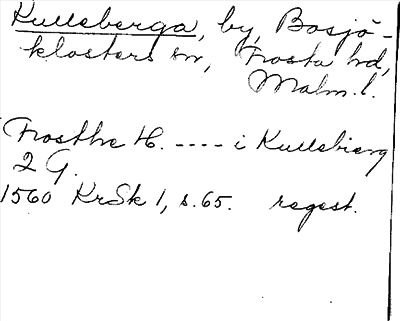 Kulleberga, by, Bosjö-
klosters sn, Frosta hd,
Malm. l.
Frosthe H. ---- i Kullebierg
2 G.
1560 KrSk 1, s. 65. regest.